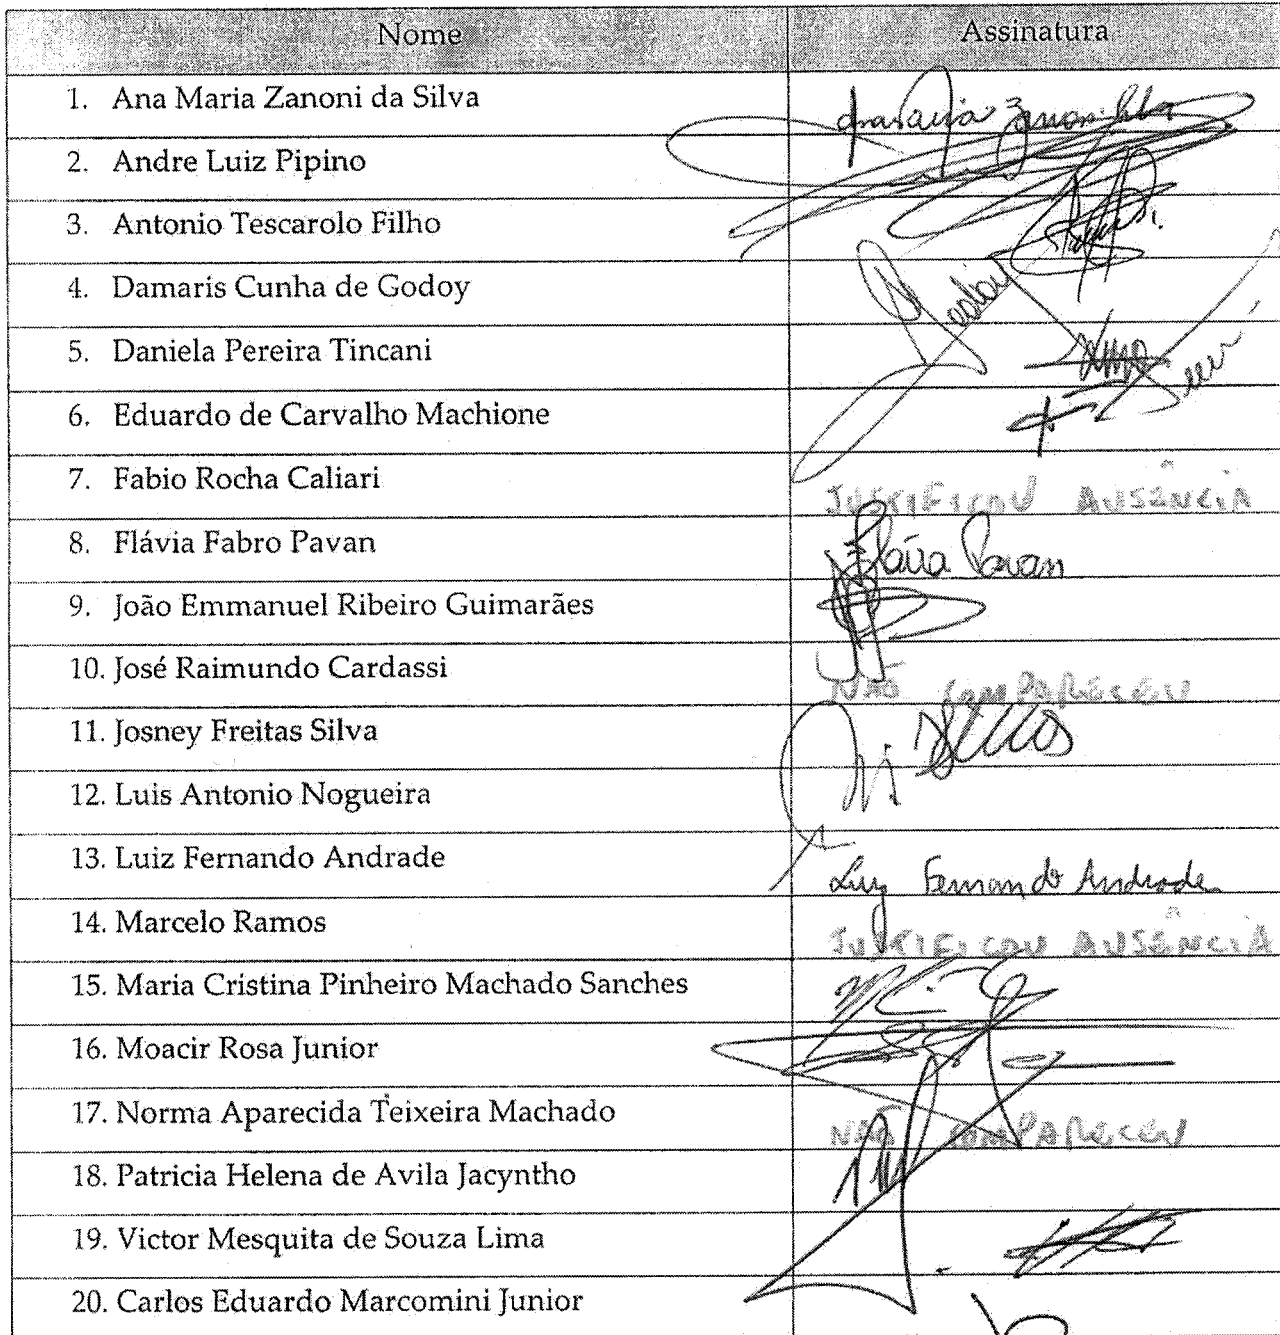 Nome Assinatura
1. Ana Maria Zanoni da Silva
2. Andre Luiz Pipino
3. Antonio Tescarolo Filho
4. Damaris Cunha de Godoy
5. Daniela Pereira Tincani
6. Eduardo de Carvalho Machione
7. Fabio Rocha Caliari JUSTIFICOU AUSÊNCIA
8. Flávia Fabro Pavan Flávia Pavan
9. João Emmanuel Ribeiro Guimarães
10. José Raimundo Cardassi NÃO COMPARECEU
11. Josney Freitas Silva
12. Luis Antonio Nogueira
13. Luiz Fernando Andrade Luiz Fernando Andrade
14. Marcelo Ramos JUSTIFICOU AUSÊNCIA
15. Maria Cristina Pinheiro Machado Sanches
16. Moacir Rosa Junior
17. Norma Aparecida Teixeira Machado NÃO COMPARECEU
18. Patricia Helena de Avila Jacyntho
19. Victor Mesquita de Souza Lima
20. Carlos Eduardo Marcomini Junior